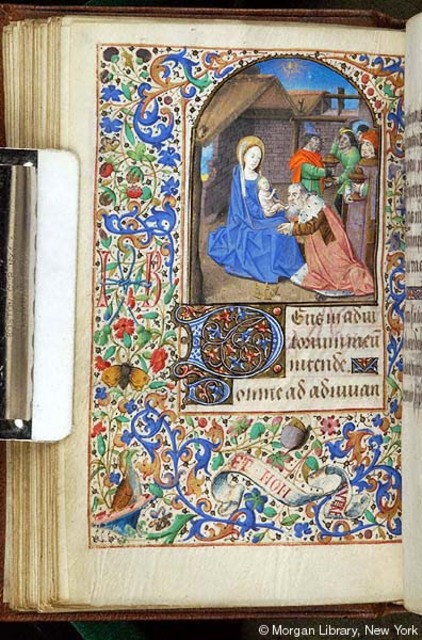 Deus in adiu
torium meū
intende
Domine ad adiuuan
ET NON
© Morgan Library, New York